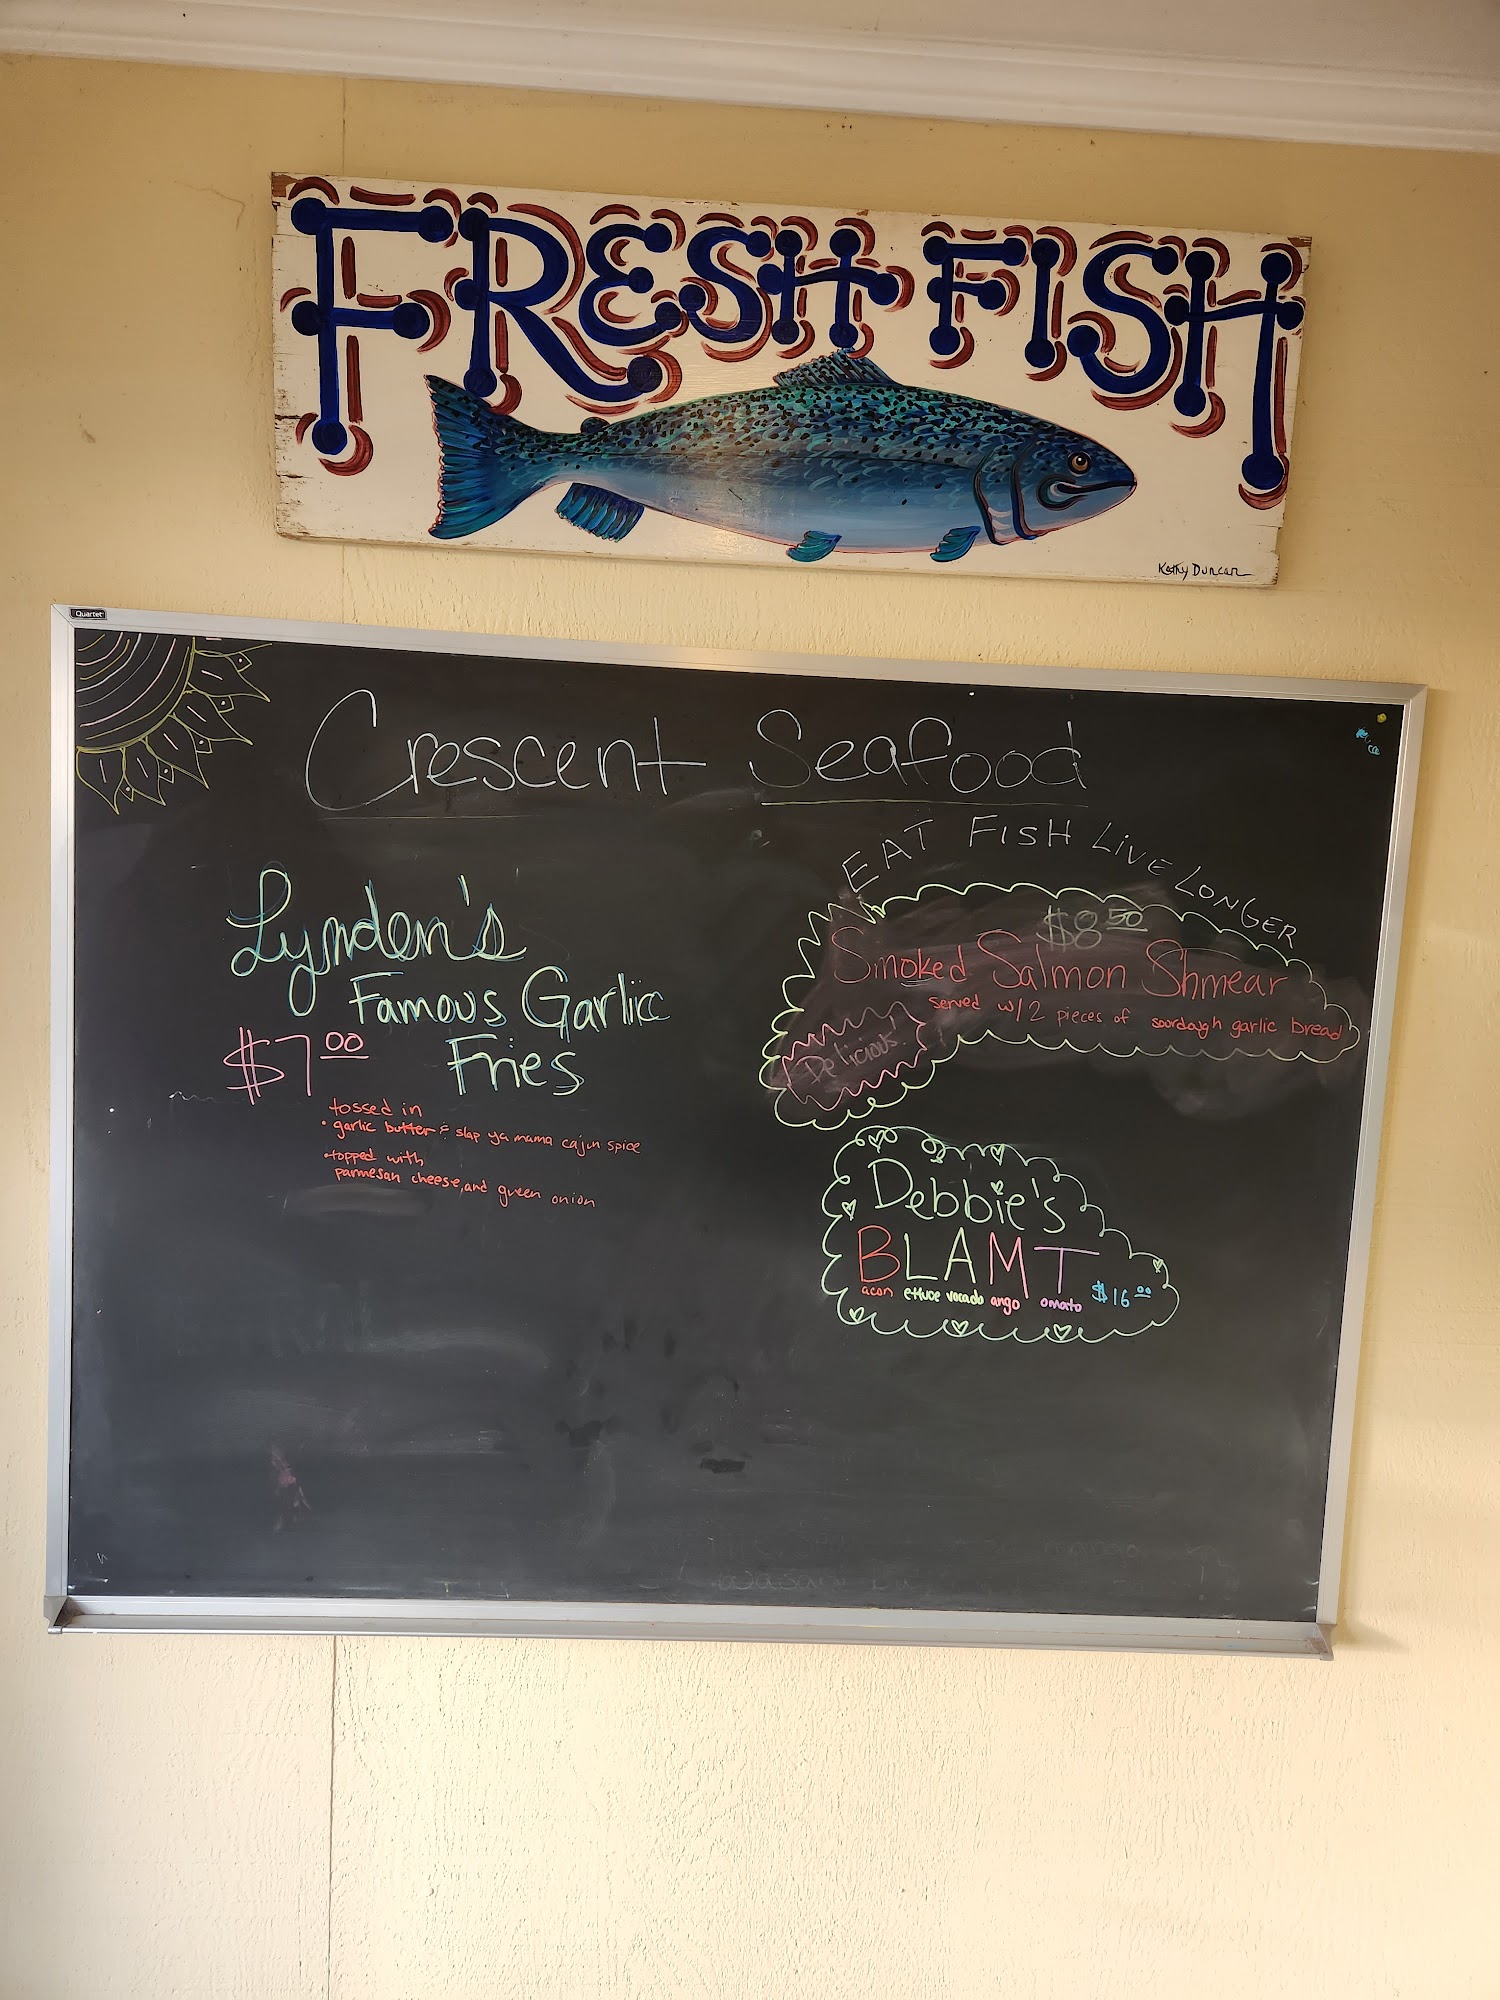 FRESH FISH
Kathy Duncan
Quartet
Crescent Seafood
Lynden's
Famous Garlic
$7.00
Fries
tossed in
• garlic butter & slap ya mama cajun spice
• topped with
parmesan cheese, and green onion
EAT FISH LIVE LONGER
$8.50
Smoked Salmon Shmear
served w/2 pieces of sourdough garlic bread
Delicious!
Debbie's
BLAMT
acon ettuce vocado ango omato $16.00